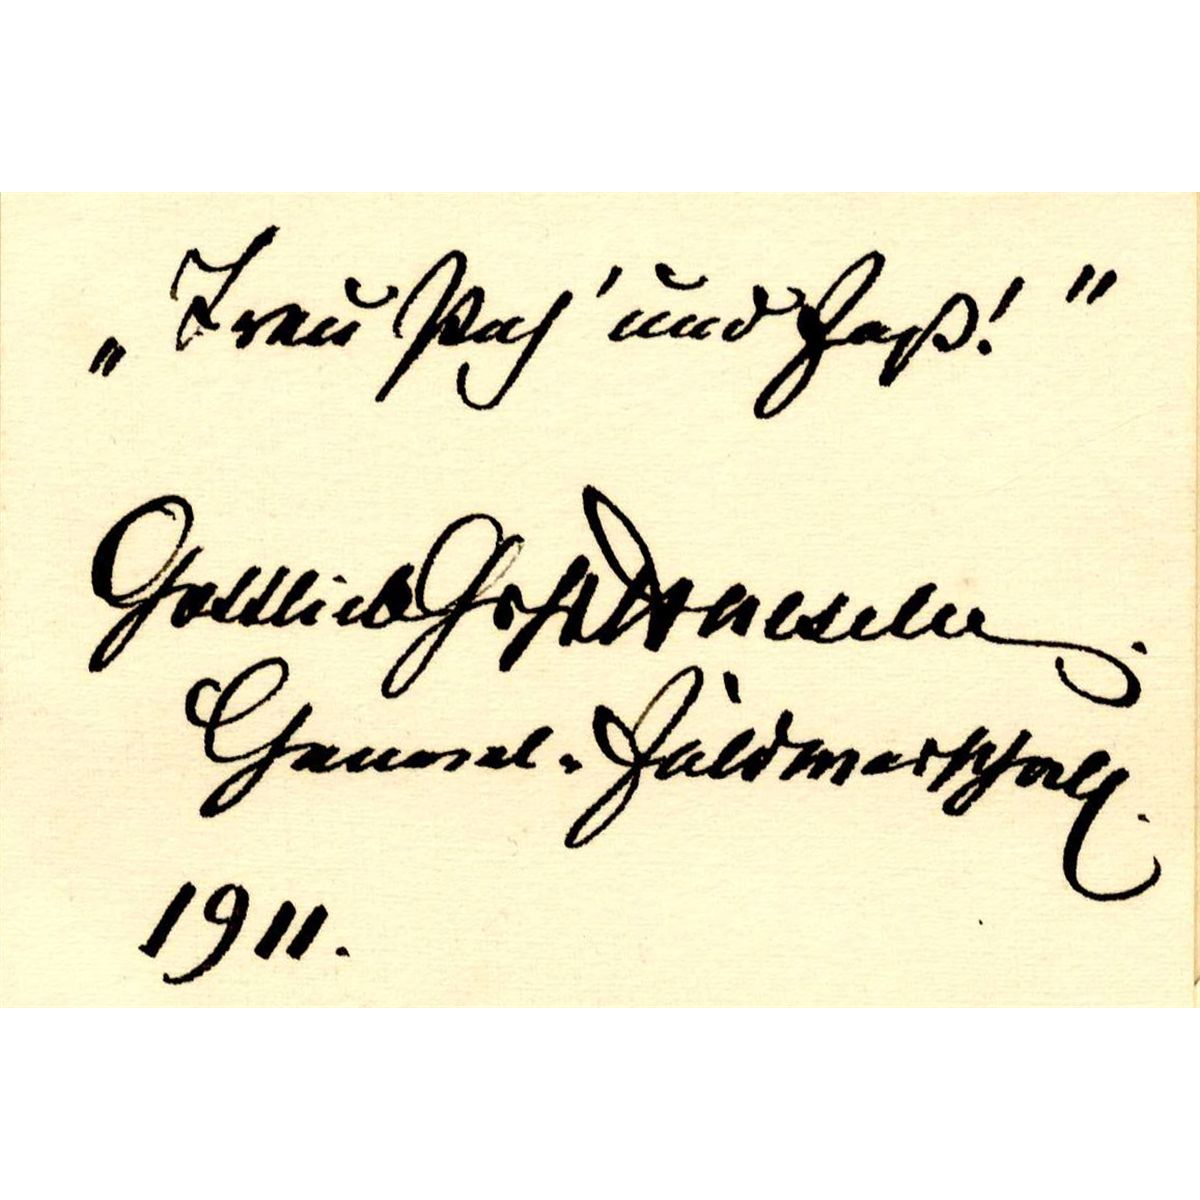 „Treu und
Gottlieb Graf Haeseler.
General-Feldmarschall.
1911.